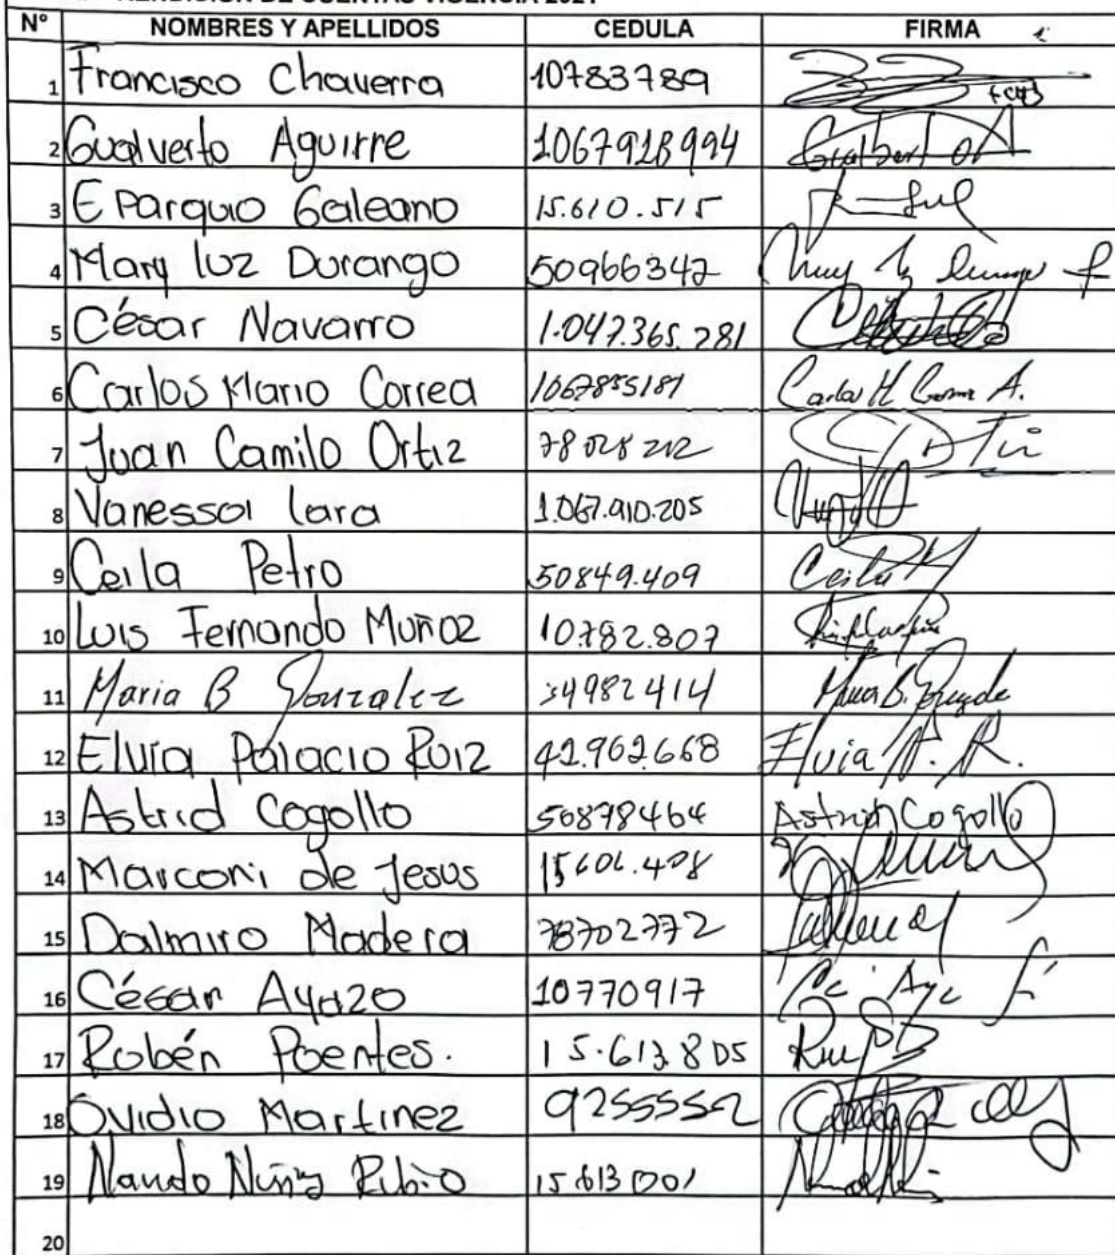 RENDICION DE CUENTAS VIGENCIA 2021
N° NOMBRES Y APELLIDOS CEDULA FIRMA
1 Francisco Chaverra 10783789
2 Gualverto Aguirre 1067918994
3 E Parquio Galeano 15.610.515
4 Mary luz Durango 50966342
5 César Navarro 1.047.365.281
6 Carlos Mario Correa 1067855181 Carlos M Correa A.
7 Juan Camilo Ortiz 78 028 202
8 Vanessa lara 1.067.910.205
9 Ceila Petro 50849.409 Ceila P
10 Luis Fernando Muñoz 10.782.807
11 Maria B Gonzalez 34982414 Maria B.
12 Elvia Palacio Ruiz 41.962.668 Elvia P. R.
13 Astrid Cogollo 50878464 Astrid Cogollo
14 Marconi de Jesus 15606.408
15 Dalmiro Madera 78702772
16 César Ayazo 10770917
17 Robén Poentes. 15.613.805
18 Ovidio Martinez 9255552
19 Nando Rubio 15613001
20